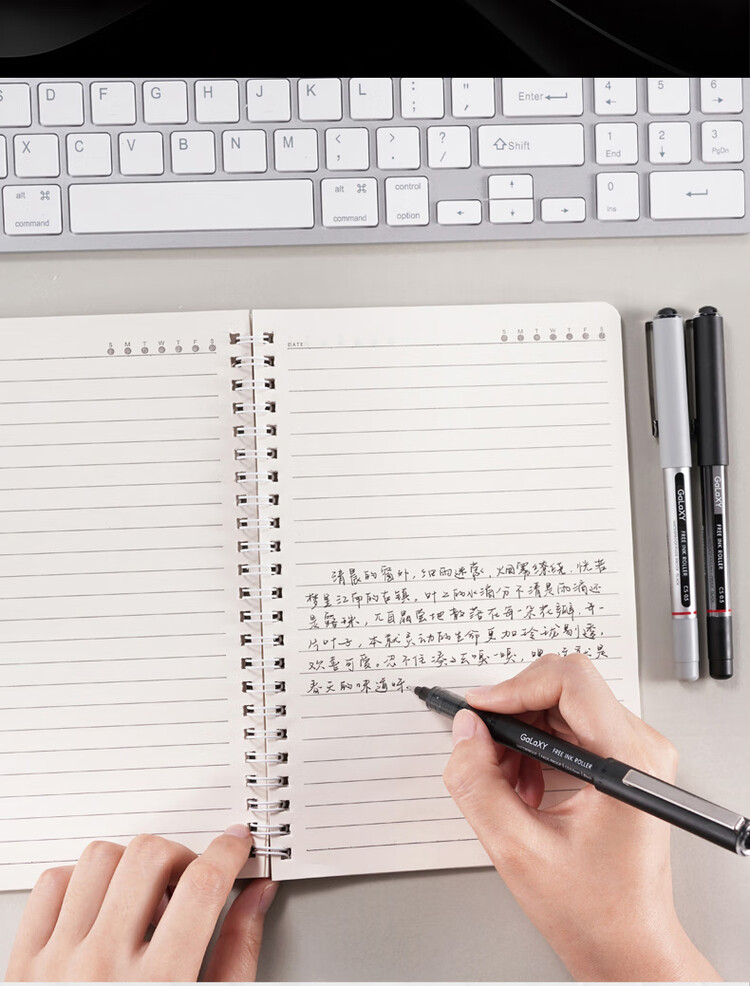 S D F G H J K L : ; " , Enter 4 5 6
X C V B N M < , > . ? / Shift 1 End 2 3 PgDn
alt command alt command control option 0 Ins
S M T W T F S
DATE S M T W T F S
清晨的窗外，细雨迷蒙，烟雾缭绕，恍若
梦里江南的古镇，叶上的水滴分不清是雨滴还
是露珠，兀自晶莹地散落在每一朵花瓣，每一
片叶子，本就灵动的生命更加玲珑剔透，
欢喜可爱。忍不住凑上去嗅一嗅，嗯，这就是
春天的味道
GaLaXY FREE INK ROLLER CS 0.5
GaLaXY FREE INK ROLLER CS 0.5
GaLaXY FREE INK ROLLER